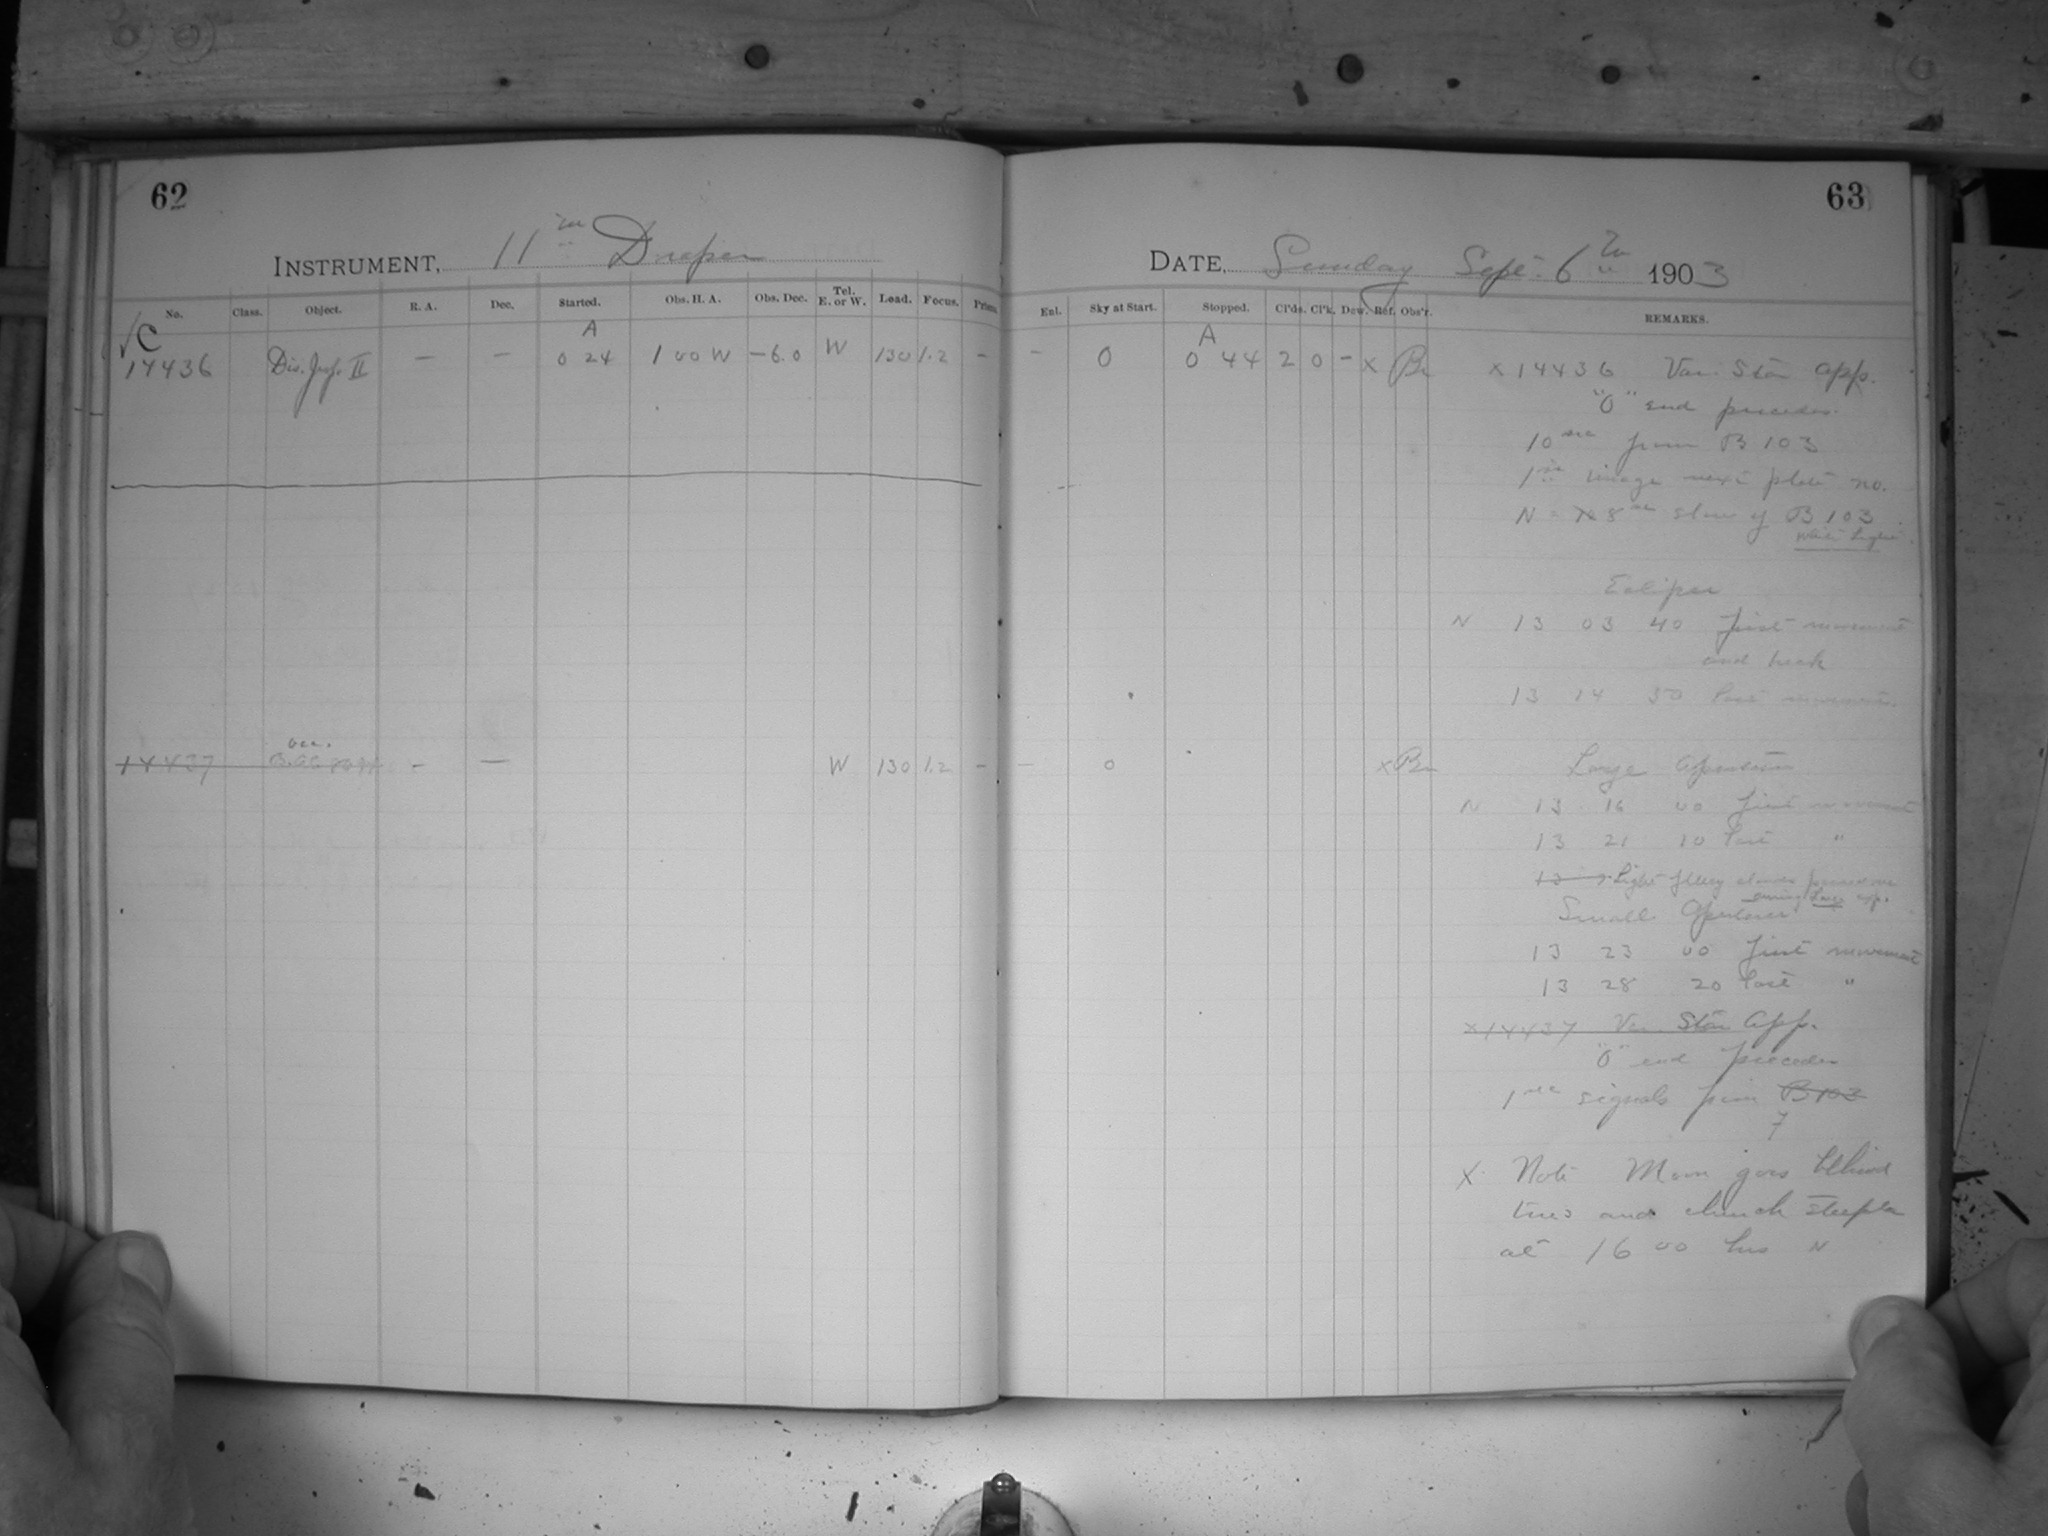 62
INSTRUMENT, 11 in Draper
No. Class. Object. R. A. Dec. Started. Obs. H. A. Obs. Dec. Tel. E. or W. Lead. Focus. Prism.
√C A
14436 Dis. Jup. II — — 0 24 1 00 W -6.0 W 130 1.2 -
occ.
14437 - — W 130 1.2 -
63
DATE, Sunday Sept. 6 1903
Enl. Sky at Start. Stopped. Cl'ds. Cl'k. Dew. Ref. Obs'r. REMARKS.
A
- 0 0 44 2 0 - x Br x 14436 Var. Star App.
"O" end precedes.
10 sec from B 103
1st image next plate no.
N = 8 slow of B 103
White Light.
Eclipse
N 13 03 40 first movement
and back
13 14 30 last movement.
— 0 x Br Large Aperture
N 13 16 00 first movement
13 21 10 last "
13 Light fleecy clouds
during Large app.
Small Aperture
13 23 00 first movement
13 28 20 last "
x 14437 Var. Star App.
"O" end precedes
1 sec signals from B 103
7
X. Note Moon goes behind
trees and church steeple
at 16 00 hrs N